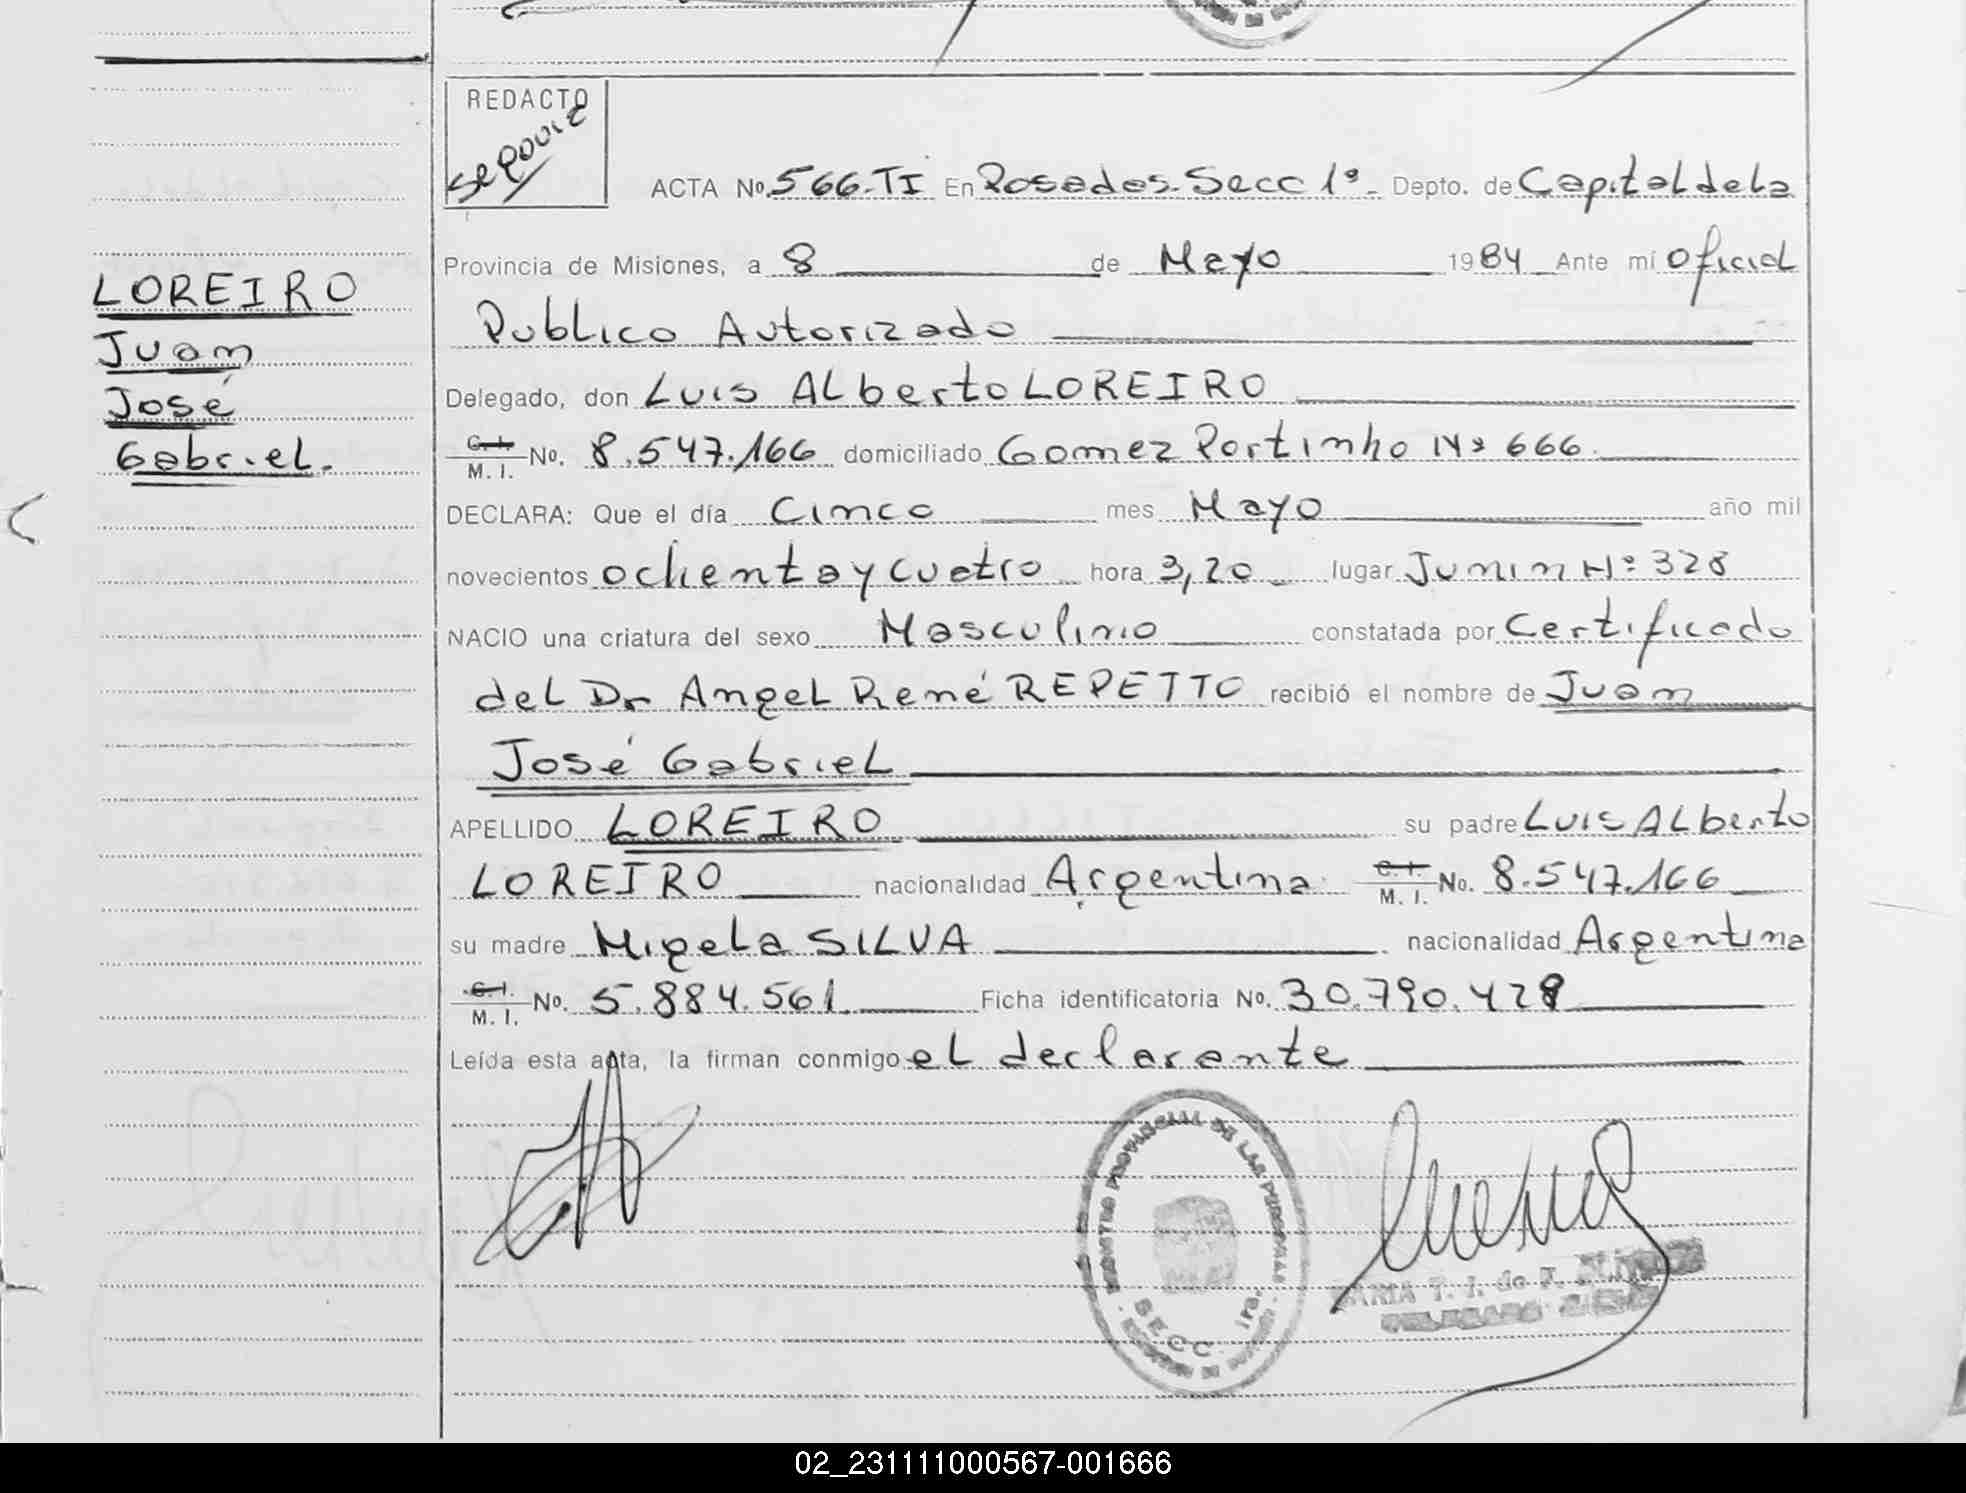 REDACTO
Segovia
ACTA No. 566.TI En Posadas. Secc 1º. Depto. de Capital de la
Provincia de Misiones, a 8 de Mayo 1984 Ante mí Oficial
Publico Autorizado
Delegado, don Luis Alberto LOREIRO
C.I. M. I. No. 8.547.166 domiciliado Gomez Portinho Nº 666
DECLARA: Que el día Cinco mes Mayo año mil
novecientos ochenta y cuatro hora 3,20 lugar Junin Nº 328
NACIO una criatura del sexo Masculino constatada por Certificado
del Dr Angel René REPETTO recibió el nombre de Juan
José Gabriel
APELLIDO LOREIRO su padre Luis Alberto
LOREIRO nacionalidad Argentina C.I. M. I. No. 8.547.166
su madre Migela SILVA nacionalidad Argentina
C.I. M. I. No. 5.884.561. Ficha identificatoria No. 30.790.428
Leída esta acta, la firman conmigo el declarante
LOREIRO
Juan
José
Gabriel.
REGISTRO PROVINCIAL DE LAS PERSONAS
SECC. 1ra.
MARIA T. I. de
DELEGADO
02_231111000567-001666